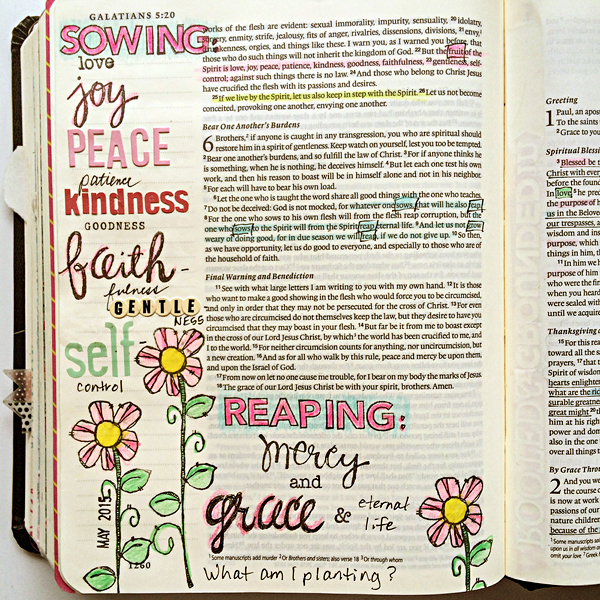 GALATIANS 5:20
SOWING:
love
joy
PEACE
patience
kindness
GOODNESS
faith-
fulness
GENTLE
NESS
self
control
MAY 2015
1260
works of the flesh are evident: sexual immorality, impurity, sensuality, 20 idolatry,
sorcery, enmity, strife, jealousy, fits of anger, rivalries, dissensions, divisions, 21 envy,
drunkenness, orgies, and things like these. I warn you, as I warned you before, that
those who do such things will not inherit the kingdom of God. 22 But the fruit of the
Spirit is love, joy, peace, patience, kindness, goodness, faithfulness, 23 gentleness, self-
control; against such things there is no law. 24 And those who belong to Christ Jesus
have crucified the flesh with its passions and desires.
25 If we live by the Spirit, let us also keep in step with the Spirit. 26 Let us not become
conceited, provoking one another, envying one another.
Bear One Another's Burdens
6 Brothers, if anyone is caught in any transgression, you who are spiritual should
restore him in a spirit of gentleness. Keep watch on yourself, lest you too be tempted.
2 Bear one another's burdens, and so fulfill the law of Christ. 3 For if anyone thinks he
is something, when he is nothing, he deceives himself. 4 But let each one test his own
work, and then his reason to boast will be in himself alone and not in his neighbor.
5 For each will have to bear his own load.
6 Let the one who is taught the word share all good things with the one who teaches.
7 Do not be deceived: God is not mocked, for whatever one sows, that will he also reap.
8 For the one who sows to his own flesh will from the flesh reap corruption, but the
one who sows to the Spirit will from the Spirit reap eternal life. 9 And let us not grow
weary of doing good, for in due season we will reap, if we do not give up. 10 So then,
as we have opportunity, let us do good to everyone, and especially to those who are of
the household of faith.
Final Warning and Benediction
11 See with what large letters I am writing to you with my own hand. 12 It is those
who want to make a good showing in the flesh who would force you to be circumcised,
and only in order that they may not be persecuted for the cross of Christ. 13 For even
those who are circumcised do not themselves keep the law, but they desire to have you
circumcised that they may boast in your flesh. 14 But far be it from me to boast except
in the cross of our Lord Jesus Christ, by which the world has been crucified to me, and
I to the world. 15 For neither circumcision counts for anything, nor uncircumcision, but
a new creation. 16 And as for all who walk by this rule, peace and mercy be upon them,
and upon the Israel of God.
17 From now on let no one cause me trouble, for I bear on my body the marks of Jesus.
18 The grace of our Lord Jesus Christ be with your spirit, brothers. Amen.
REAPING:
mercy
and
grace & eternal
life
1 Some manuscripts add murder 2 Or Brothers and sisters; also verse 18 3 Or through whom
What am I planting?
Greeting
1 Paul, an apos
To the saints
2 Grace to you
Spiritual Blessi
3 Blessed be t
Christ with every
before the found
In love 5 he pred
the purpose of h
us in the Beloved
our trespasses, a
wisdom and ins
purpose, which
things in him, th
11 In him we h
purpose of him
who were the fi
when you heard
were sealed with
until we acquire
Thanksgiving a
15 For this rea
toward all the s
prayers, 17 that
Spirit of wisdom
hearts enlighten
what are the ric
surable greatne
great might 20 th
him at his right
power and dom
also in the one
over all things t
By Grace Throu
2 And you we
the course of
is now at work
passions of our
nature children
because of the